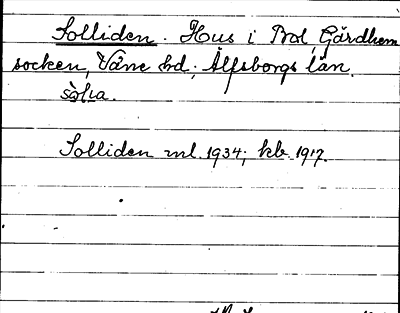 Solliden. Hus i Brol, Gärdhem
socken, Väne hd, Älfsborgs län.
Solliden ml. 1934; kb 1917.